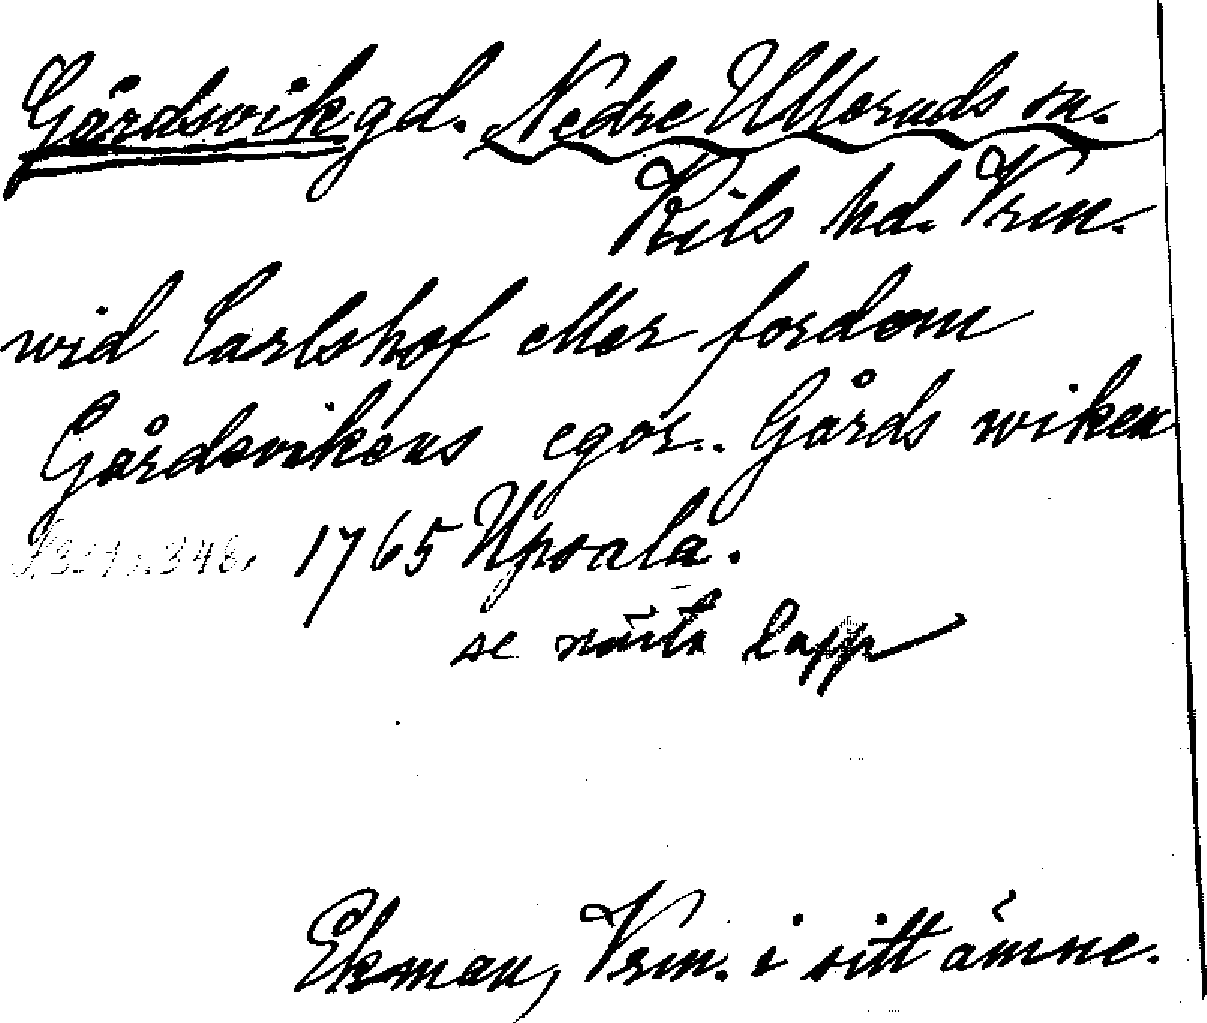 Gårdsvik gd. Nedre Ulleruds sn.
Kils hd. Vrm.
wid Carlshof eller fordom
Gårdsvikens egor.. Gårds wiken
1765 Upsala.
se nästa lapp
Ekman, Vrm. i sitt ämne.